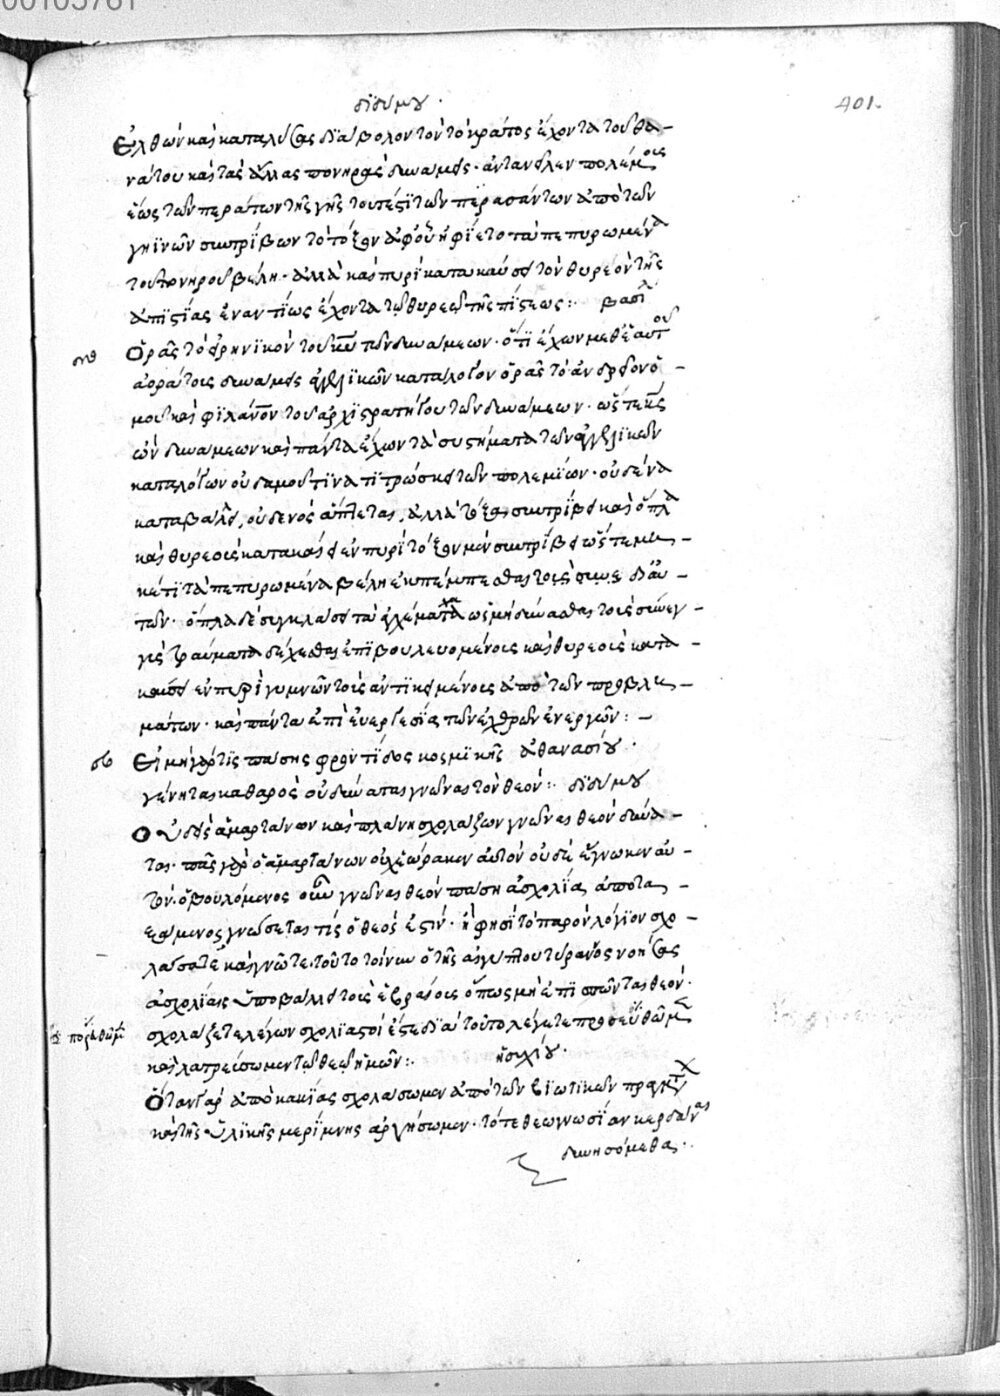 00105781
διδύμου.
401.
Ἐλθὼν καὶ καταλύσας διάβολον τὸν τὸ κράτος ἔχοντα τοῦ θα-
νάτου καὶ τὰς ἄλλας πονηρὰς δυνάμεις. ἀντανεῖλεν πολέμοις
ἕως τῶν περάτων τῆς γῆς τουτέστι τῶν περασάντων ἀπὸ τῶν
γηΐνων συντρίβων τὸ τόξον ἀφ' οὗ ἠφίετο τὰ πεπυρωμένα
τοῦ πονηροῦ βέλη. ἀλλὰ καὶ πυρὶ κατακαύσει τὸν θυρεὸν τῆς
ἀπιστίας ἐναντίως ἔχοντα τῷ θυρεῷ τῆς πίστεως: βασιλ
Ὁρᾷς τὸ εἰρηνικὸν τοῦ κυ τῶν δυνάμεων. ὅτι ἔχων μεθ' ἑαυτοῦ
ἀοράτοις δυνάμεις ἀγγελικῶν καταλόγον ὁρᾷς τὸ ἀνδρεῖον ὁ-
μοῦ καὶ φιλάνον τοῦ ἀρχιστρατήγου τῶν δυνάμεων. ὥστε κς
ὢν δυνάμεων καὶ πάντα ἔχων τὰ συστήματα τῶν ἀγγελικῶν
καταλόγων οὐδαμοῦ τινα τιτρώσκει τῶν πολεμίων. οὐδένα
καταβάλλει, οὐδενὸς ἅπτεται, ἀλλὰ τόξα συντρίβει καὶ ὅπλα
καὶ θυρεοὺς κατακαίει ἐν πυρὶ τόξον μὲν συντρίβει ὥστε μη-
κέτι τὰ πεπυρωμένα βέλη ἐκπέμπεσθαι τοῖς δι' αὐ-
τῶν. ὅπλα δὲ συγκλάσει τὰ ἀγχέμαχα ὡς μὴ δύνασθαι τοὺς σύνεγ-
γυς τραύματα δέχεσθαι ἐπιβουλευομένοις καὶ θυρεοὺς κατα-
καίσει ἐν πυρὶ γυμνῶν τοὺς ἀντικειμένοις ἀπὸ τῶν προβλη-
μάτων. καὶ πάντα ἐπὶ εὐεργεσίᾳ τῶν ἐχθρῶν ἐνεργῶν: -
Εἰ μὴ γάρ τις πάσης φροντίδος κοσμικῆς ἀθανασίου.
γένηται καθαρὸς οὐ δύναται γνῶναι τὸν θεόν: διδύμου
Οὐδεὶς ἁμαρτάνων καὶ πλάνῃ σχολάζων γνῶναι θεὸν δύνα-
ται. πᾶς γὰρ ὁ ἁμαρτάνων οὐχ ἑώρακεν αὐτὸν οὐδὲ ἔγνωκεν αὐ-
τόν. ὁ βουλόμενος οὖν γνῶναι θεὸν πάσῃ ἀσχολίᾳ ἀποτα-
ξάμενος γνώσεται τίς ὁ θεός ἐστίν. ᾗ φησὶ τὸ παρὸν λόγιον σχο-
λάσατε καὶ γνῶτε. τοῦτο τοίνυν ὁ τῆς αἰγύπτου τύραννος νοήσας
ἀσχολίας ὑποβάλλει τοῖς ἑβραίοις ὅπως μὴ ἐπισπῶνται θεόν.
σχολάζετε λέγων σχολασταί ἐστε διὰ τοῦτο λέγετε προσευξώμεθα
καὶ λατρεύσωμεν τῷ θεῷ ἡμῶν: ἡσυχίου.
Ὅταν γὰρ ἀπὸ κακίας σχολάσωμεν ἀπὸ τῶν βιωτικῶν πραγμάτων
καὶ τῆς ὑλικῆς μερίμνης ἀργήσωμεν. τότε θεωγνωσίαν κερδᾶναι
δυνησόμεθα.